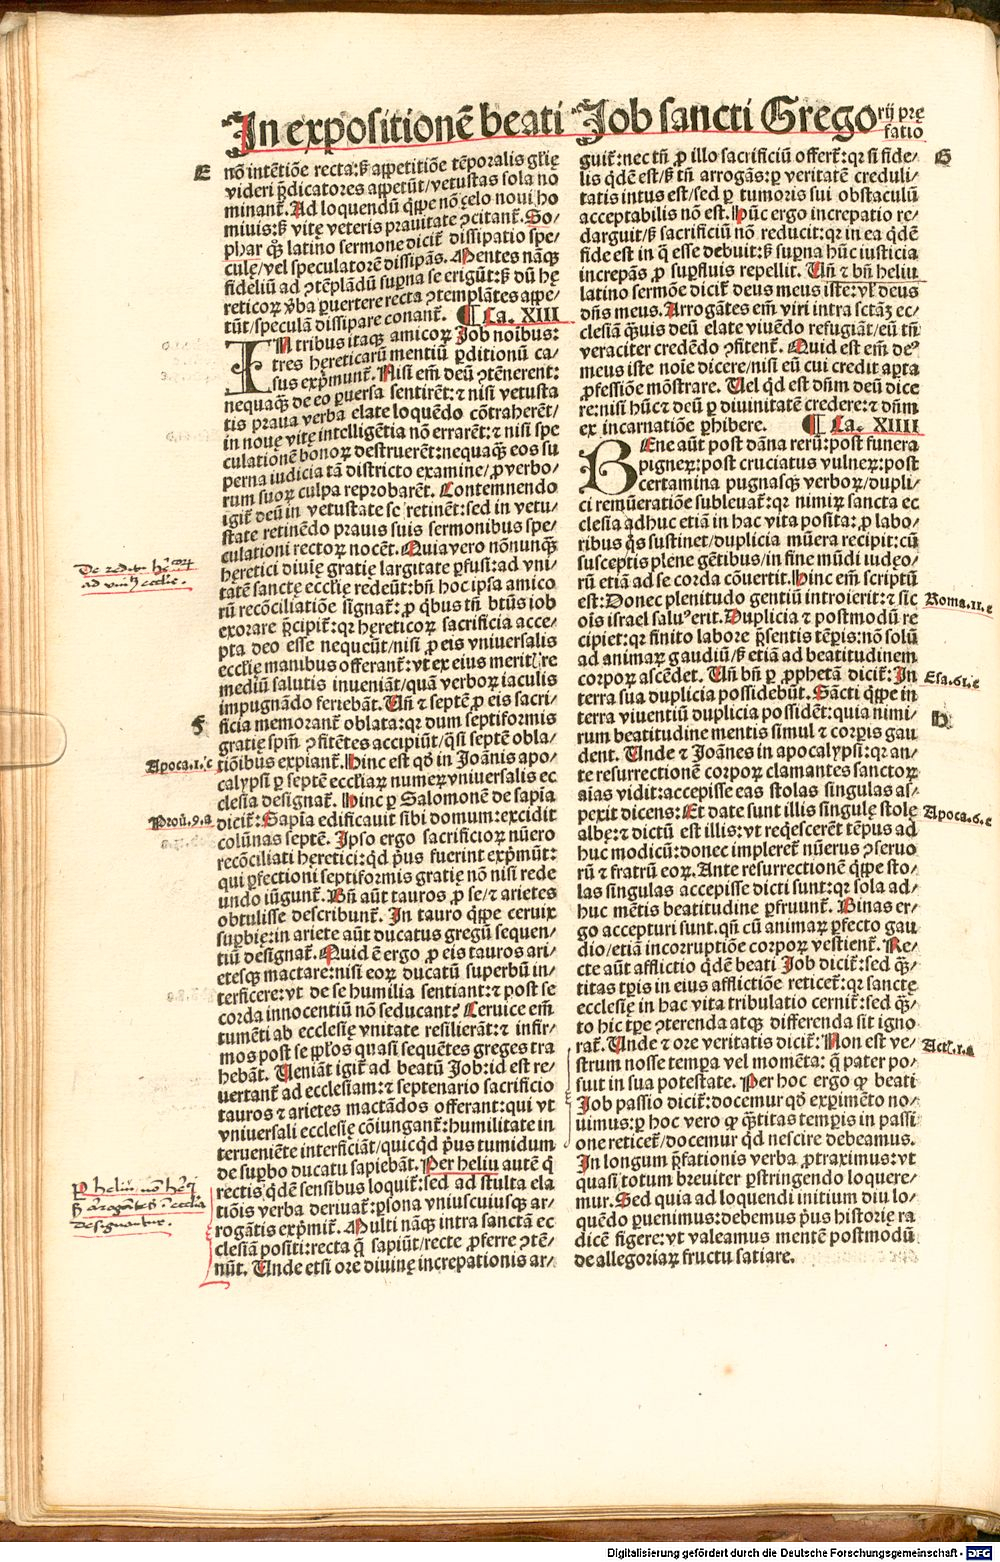 In expositionē beati Job sancti Gregorij prę
fatio
E
nō intētiōe recta: sꝫ appetitiōe tēporalis glīę
videri p̄dicatores appetūt/vetustas sola no
minant̄. Ad loquendū qͥppe nō ęelo noui ho
miuis: sꝫ vitę veteris prauitate ꝯcitant̄. So-
phar qꝫ latino sermone dicit̄ dissipatio spe/
culę/vel speculatorē dissipās. Mentes nāqꝫ
fideliū ad ꝯtēplādū supna se erigūt: sꝫ dū hę
reticoꝝ v̓ba ꝑuertere recta ꝯtemplātes appe/
tūt/speculā dissipare conant̄. ¶ Ca. XIII
IN tribus itaqꝫ amicoꝝ Job noibus:
tres hereticarū mentiū ꝑditionū ca-
sus exp̓munt̄. Nisi em̄ deū ꝯtēnerent:
nequaqꝫ de eo ꝑuersa sentirēt: ⁊ nisi vetusta
tis praua verba elate loquēdo cōtraherēt/
in nouę vitę intelligētia nō errarēt: ⁊ nisi spe
culationē bonoꝝ destruerēt: nequaqꝫ eos su
perna iudicia tā districto examine/ꝓ verbo/
rum suoꝝ culpa reprobarēt. Contemnendo
igit̄ deū in vetustate se retinēt: sed in vetu/
state retinēdo prauis suis sermonibus spe/
culationi rectoꝝ nocēt. Quia vero nōnunqꝫ
hęretici diuię gratię largitate ꝑfusi: ad vni/
tatē sanctę ecclīę redeūt: bn̄ hoc ipsa amico
rū recōciliatiōe signat̄: ꝓ qͥbus tn̄ btūs iob
exorare p̄cipit̄: qꝛ hęreticoꝝ sacrificia acce/
pta deo esse nequeūt/nisi ꝓ eis vniuersalis
ecclīę manibus offerant̄: vt ex eius meritꝭ re
mediū salutis inueniāt/quā verboꝝ iaculis
impugnādo feriebāt. Un̄ ⁊ septē ꝓ eis sacri/
F
ficia memorant̄ oblata: qꝛ dum septiformis
gratię spm̄ ꝯfitētes accipiūt/qͣsi septē obla/
tiōibus expiant̄. Hinc est qō in Joānis apo/
calypsi ꝑ septē ecclīaꝝ numeꝝ vniuersalis ec
clesia designat̄. Hinc ꝑ Salomonē de sapīa
dicit̄: Sapīa edificauit sibi domum: excidit
colūnas septē. Ipso ergo sacrificioꝝ nūero
recōciliati hęretici: qͥd p̓us fuerint exp̓mūt:
qui ꝑfectioni septiformis gratię nō nisi rede
undo iūgunt̄. Bn̄ aūt tauros ꝓ se/⁊ arietes
obtulisse describunt̄. In tauro qͥppe ceruix
supbię: in ariete aūt ducatus gregū sequen/
tiū designat̄. Quid ē ergo ꝓ eis tauros ari/
etesqꝫ mactare: nisi eoꝝ ducatū superbū in/
terficere: vt de se humilia sentiant: ⁊ post se
corda innocentiū nō seducant? Ceruice em̄
tumēti ab ecclesię vnitate resilierāt: ⁊ infir-
mos post se pp̄los quasi sequētes greges tra
hebāt. Ueniāt igit̄ ad beatū Job: id est re/
uertant̄ ad ecclesiam: ⁊ septenario sacrificio
tauros ⁊ arietes mactādos offerant: qui vt
vniuersali ecclesię cōiungant̄: humilitate in
terueniēte interficiāt/quicqͥd p̓us tumidum
de supbo ducatu sapiebāt. Per heliu autē q̄
rectis qͥdē sensibus loquit̄: sed ad stulta ela
tiōis verba deriuat̄: ꝑsona vniuscuiusqꝫ ar/
rogātis exp̓mit̄. Multi nāqꝫ intra sanctā ec
clesiā positi: recta q̄ sapiūt/recte ꝓferre ꝯtē/
nūt. Unde etsi ore diuinę increpationis ar/
De reditu hęreticorum
ad vnitatem ecclesie.
Apoca.1.c
Prou.9.a
guit̄: nec tn̄ ꝓ illo sacrificiū offert̄: qꝛ si fide/
G
lis qͥdē est/sꝫ tn̄ arrogās: ꝑ veritatē creduli/
tatis intus est/sed ꝑ tumoris sui obstaculū
acceptabilis nō est. Hūc ergo increpatio re/
darguit/sꝫ sacrificiū nō reducit: qꝛ in ea qͥdē
fide est in q̄ esse debuit: sꝫ supna hūc iusticia
increpās ꝓ supfluis repellit. Un̄ ⁊ bn̄ heliu
latino sermōe dicit̄ deus meus iste: vꝉ deus
dn̄s meus. Arrogātes em̄ viri intra sctāꝫ ec/
clesiā qͣuis deū elate viuēdo refugiāt/eū tn̄
veraciter credēdo ꝯfitent̄. Quid est em̄ deꝰ
meus iste noīe dicere/nisi eū cui credit apta
ꝓfessiōe mōstrare. Uel qͥd est dn̄m deū dice
re: nisi hūc ⁊ deū ꝑ diuinitatē credere: ⁊ dn̄m
ex incarnatiōe ꝑhibere. ¶ Ca. XIIII
BEne aūt post dāna rerū: post funera
pigneꝝ: post cruciatus vulneꝝ: post
certamina pugnasqꝫ verboꝝ/dupli/
ci remūeratiōe subleuat̄: qꝛ nimiꝝ sancta ec
clesia adhuc etiā in hac vita posita: ꝓ labo/
ribus qͦs sustinet/duplicia mūera recipit: cū
susceptis plene gētibus/in fine mūdi iudęo/
rū etiā ad se corda cōuertit. Hinc em̄ scriptū
est: Donec plenitudo gentiū introierit: ⁊ sic
oīs israel saluꝰ erit. Duplicia ⁊ postmodū re
cipiet: qꝛ finito labore p̄sentis tēpis: nō solū
ad animaꝝ gaudiū/sꝫ etiā ad beatitudinem
corpoꝝ ascēdet. Un̄ bn̄ ꝑ ꝓphetā dicit̄: In
terra sua duplicia possidebūt. Sācti qͥppe in
H
terra viuentiū duplicia possidēt: quia nimi/
rum beatitudine mentis simul ⁊ corpis gau
dent. Unde ⁊ Joānes in apocalypsi: qꝛ an/
te resurrectionē corpoꝝ clamantes sanctoꝝ
aīas vidit: accepisse eas stolas singulas as/
pexit dicens: Et date sunt illis singulę stolę
albę: ⁊ dictū est illis: vt reqͥescerēt tēpus ad
huc modicū: donec implerēt̄ nūerus ꝯseruo
rū ⁊ fratrū eoꝝ. Ante resurrectionē qͥppe sto/
las singulas accepisse dicti sunt: qꝛ sola ad/
huc mētis beatitudine ꝑfruunt̄. Binas er/
go accepturi sunt. qn̄ cū animaꝝ ꝑfecto gau
dio/etiā incorruptiōe corpoꝝ vestient̄. Re/
cte aūt afflictio qͥdē beati Job dicit̄: sed qͣ̄/
titas tpīs in eius afflictiōe reticet̄: qꝛ sanctę
ecclesię in hac vita tribulatio cernit̄: sed qͣ̄/
to hic tpe ꝯterenda atqꝫ differenda sit igno
rat̄. Unde ⁊ ore veritatis dicit̄: Non est ve/
strum nosse tempa vel momēta: q̄ pater po/
suit in sua potestate. Per hoc ergo ꝙ beati
Job passio dicit̄: docemur qō expimēto no/
uimus: ꝑ hoc vero ꝙ qͣ̄titas tempis in passi
one reticet̄/docemur qͥd nescire debeamus.
In longum p̄fationis verba ꝓtraximus: vt
quasi totum breuiter ꝑstringendo loquere/
mur. Sed quia ad loquendi initium diu lo/
quēdo ꝑuenimus: debemus p̓us historię ra
dicē figere: vt valeamus mentē postmodū
de allegoriaꝝ fructu satiare.
Roma.11.c
Esa.61.c
Apoca.6.c
Act.1.a
Digitalisierung gefördert durch die Deutsche Forschungsgemeinschaft - DFG